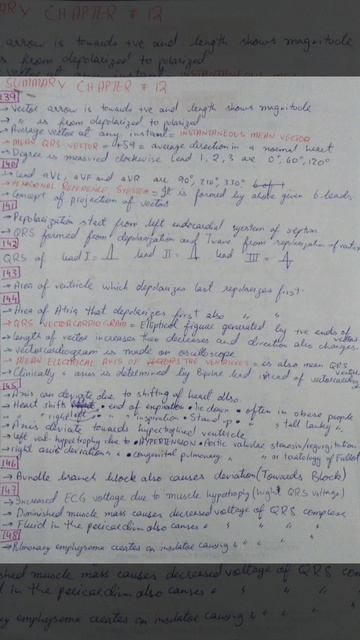 SUMMARY CHAPTER # 12
139
→ Vector arrow is towards +ve and length shows magnitude
→ " is from depolarized to polarized
→ Average vector at any instant = INSTANTANEOUS MEAN VECTOR
→ MEAN QRS VECTOR = +59 = average direction in a normal heart
→ Degree is measured clockwise Lead 1, 2, 3 are 0°, 60°, 120°
140
→ Lead aVL, aVF and aVR are 90°, 210°, 330°
→ REFERENCE SYSTEM = It is formed by above given 6 leads
→ Concept of projection of vector
141
→ Repolarization start from left endocardial system of septum
→ QRS formed from depolarization and T wave from repolarization of
142
QRS of lead I = lead II = lead III =
143
→ Area of ventricle which depolarizes last repolarizes first
144
→ Area of Atria that depolarizes first also " "
→ QRS VECTORCARDIOGRAM = Elliptical figure generated by +ve ends of vectors
→ Length of vector increases then decreases and direction also changes
→ Vectorcardiogram is made on oscilloscope
→ MEAN ELECTRICAL AXIS OF VENTRICLES = is also mean QRS
→ Clinically axis is determined by Bipolar lead instead of
145
→ Axis can deviate due to shifting of heart also
→ Heart shift • end of expiration • lie down • often in obese people
" right • inspiration • stand up • " tall lanky "
→ Axis deviate towards hypertrophied ventricle
→ left val. hypertrophy due to • HYPERTENSION • Aortic valvular stenosis/regurgitation
→ right axis deviation • congenital pulmonary " • or tetralogy of Fallot
146
→ Bundle branch block also causes deviation (Towards Block)
147
→ Increased ECG voltage due to muscle hypotrophy (hight QRS voltage)
→ Diminished muscle mass causes decreased voltage of QRS complexe
→ Fluid in the pericardium also causes " " " "
148
→ Pulmonary emphyseme creates an insulatae causing " " "